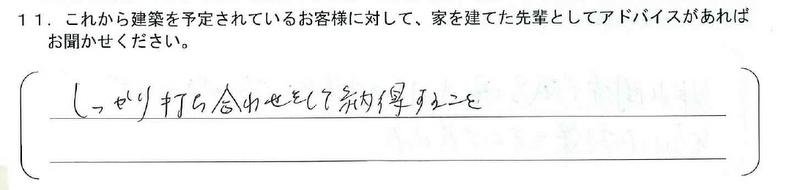 11．これから建築を予定されているお客様に対して、家を建てた先輩としてアドバイスがあれば
お聞かせください。
しっかり打ち合わせをして納得すること